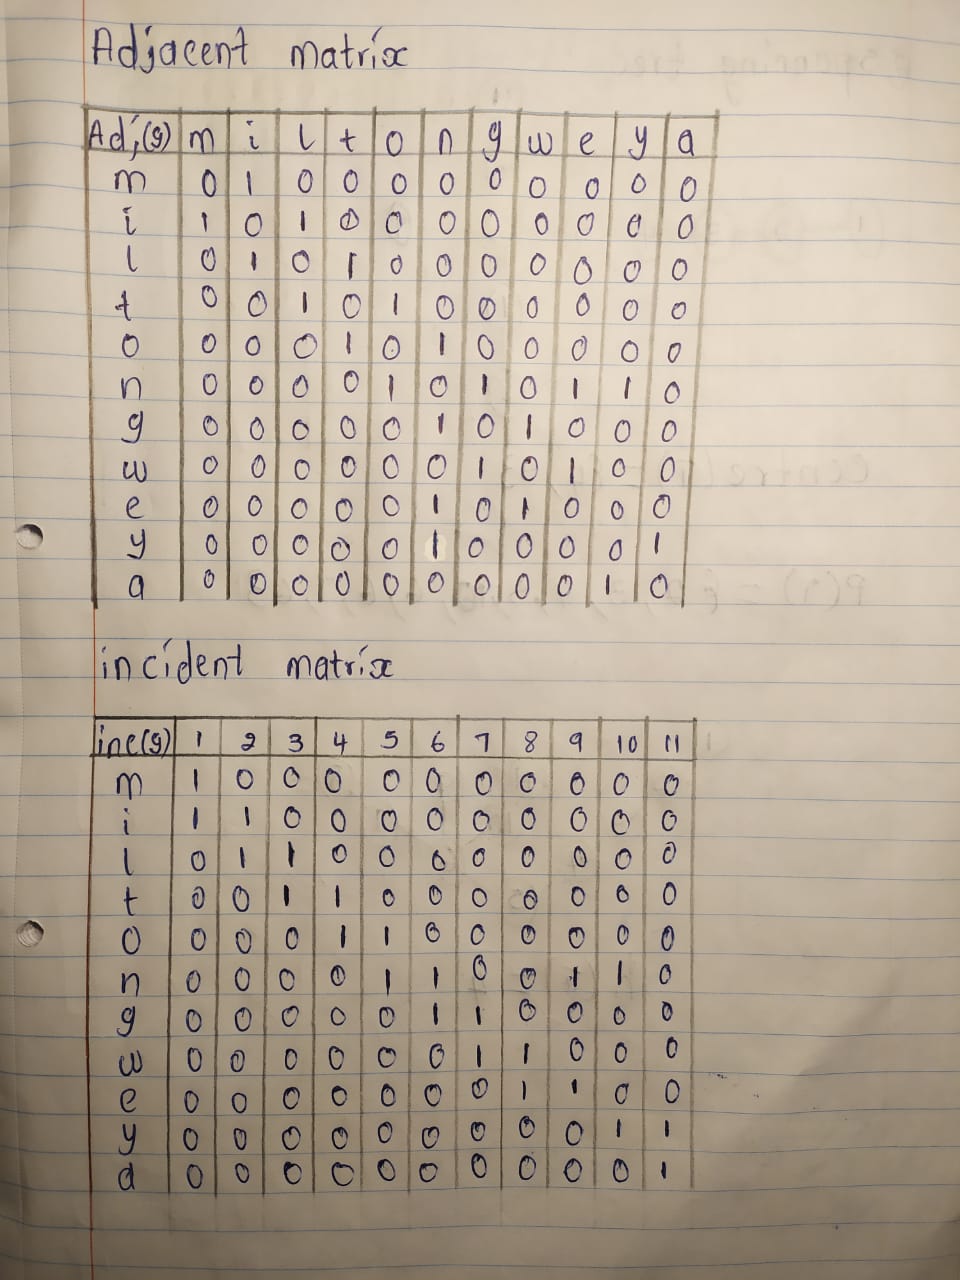 Adjacent matrix
Adj(g) m i l t o n g w e y a
m 0 1 0 0 0 0 0 0 0 0 0
i 1 0 1 0 0 0 0 0 0 0 0
l 0 1 0 1 0 0 0 0 0 0 0
t 0 0 1 0 1 0 0 0 0 0 0
o 0 0 0 1 0 1 0 0 0 0 0
n 0 0 0 0 1 0 1 0 1 1 0
g 0 0 0 0 0 1 0 1 0 0 0
w 0 0 0 0 0 0 1 0 1 0 0
e 0 0 0 0 0 1 0 1 0 0 0
y 0 0 0 0 0 1 0 0 0 0 1
a 0 0 0 0 0 0 0 0 0 1 0
incident matrix
inc(g) 1 2 3 4 5 6 7 8 9 10 11
m 1 0 0 0 0 0 0 0 0 0 0
i 1 1 0 0 0 0 0 0 0 0 0
l 0 1 1 0 0 0 0 0 0 0 0
t 0 0 1 1 0 0 0 0 0 0 0
o 0 0 0 1 1 0 0 0 0 0 0
n 0 0 0 0 1 1 0 0 1 1 0
g 0 0 0 0 0 1 1 0 0 0 0
w 0 0 0 0 0 0 1 1 0 0 0
e 0 0 0 0 0 0 0 1 1 0 0
y 0 0 0 0 0 0 0 0 0 1 1
a 0 0 0 0 0 0 0 0 0 0 1